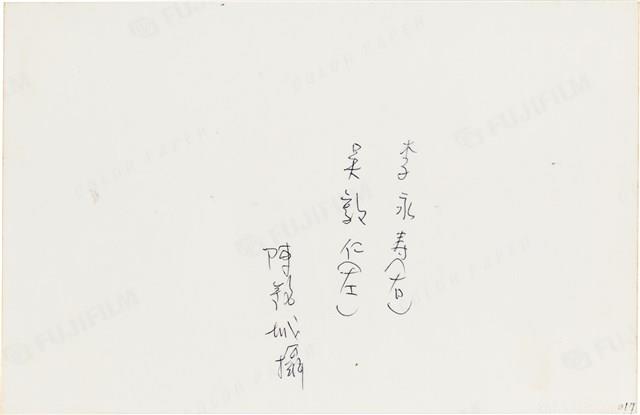 李永寿(右)
吳敦仁(左)
陳銘城攝
FUJIFILM
COLOR PAPER
FUJIFILM
COLOR PAPER
FUJIFILM
COLOR PAPER
FUJIFILM
FUJIFILM
017